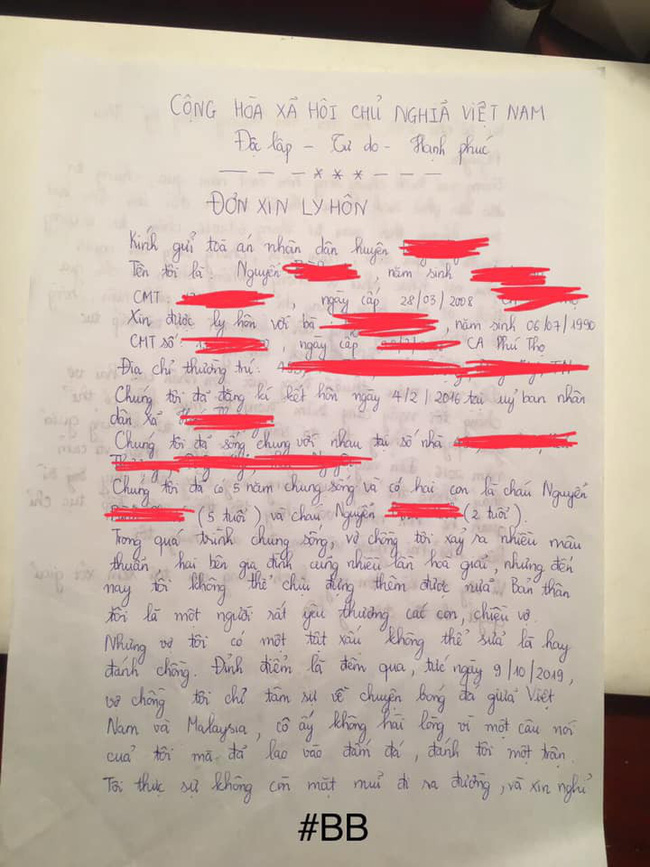 CỘNG HÒA XÃ HỘI CHỦ NGHĨA VIỆT NAM
Độc lập - Tự do - Hạnh phúc
— — — *** — — —
ĐƠN XIN LY HÔN
Kính gửi toà án nhân dân huyện
Tên tôi là Nguyễn , năm sinh
CMT: , ngày cấp 28/03/2008
Xin được ly hôn với bà , năm sinh 06/07/1990
CMT số , ngày cấp CA Phú Thọ
Địa chỉ thường trú:
Chúng tôi đã đăng kí kết hôn ngày 4/2/2016 tại uỷ ban nhân
dân xã
Chúng tôi đã sống chung với nhau tại số nhà
Chúng tôi đã có 5 năm chung sống và có hai con là cháu Nguyễn
(5 tuổi) và cháu Nguyễn (2 tuổi).
Trong quá trình chung sống, vợ chồng tôi xảy ra nhiều mâu
thuẫn, hai bên gia đình cũng nhiều lần hoà giải, nhưng đến
nay tôi không thể chịu đựng thêm được nữa. Bản thân
tôi là một người rất yêu thương các con, chiều vợ.
Nhưng vợ tôi có một tật xấu không thể sửa là hay
đánh chồng. Đỉnh điểm là đêm qua, tức ngày 9/10/2019,
vợ chồng tôi chỉ tâm sự về chuyện bóng đá giữa Việt
Nam và Malaysia, cô ấy không hài lòng vì một câu nói
của tôi mà đã lao vào đấm đá, đánh tôi một trận.
Tôi thực sự không còn mặt mũi đi ra đường, và xin nghỉ
#BB